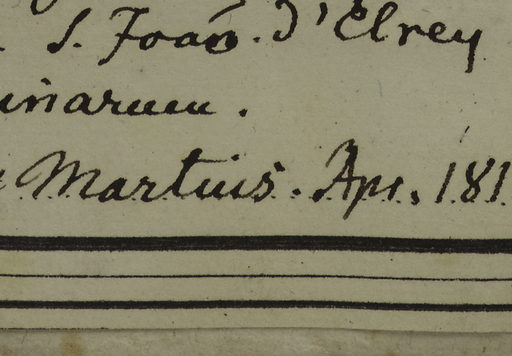 S. Joaõ. d'Elrey
inarum.
Martius. Apr. 181